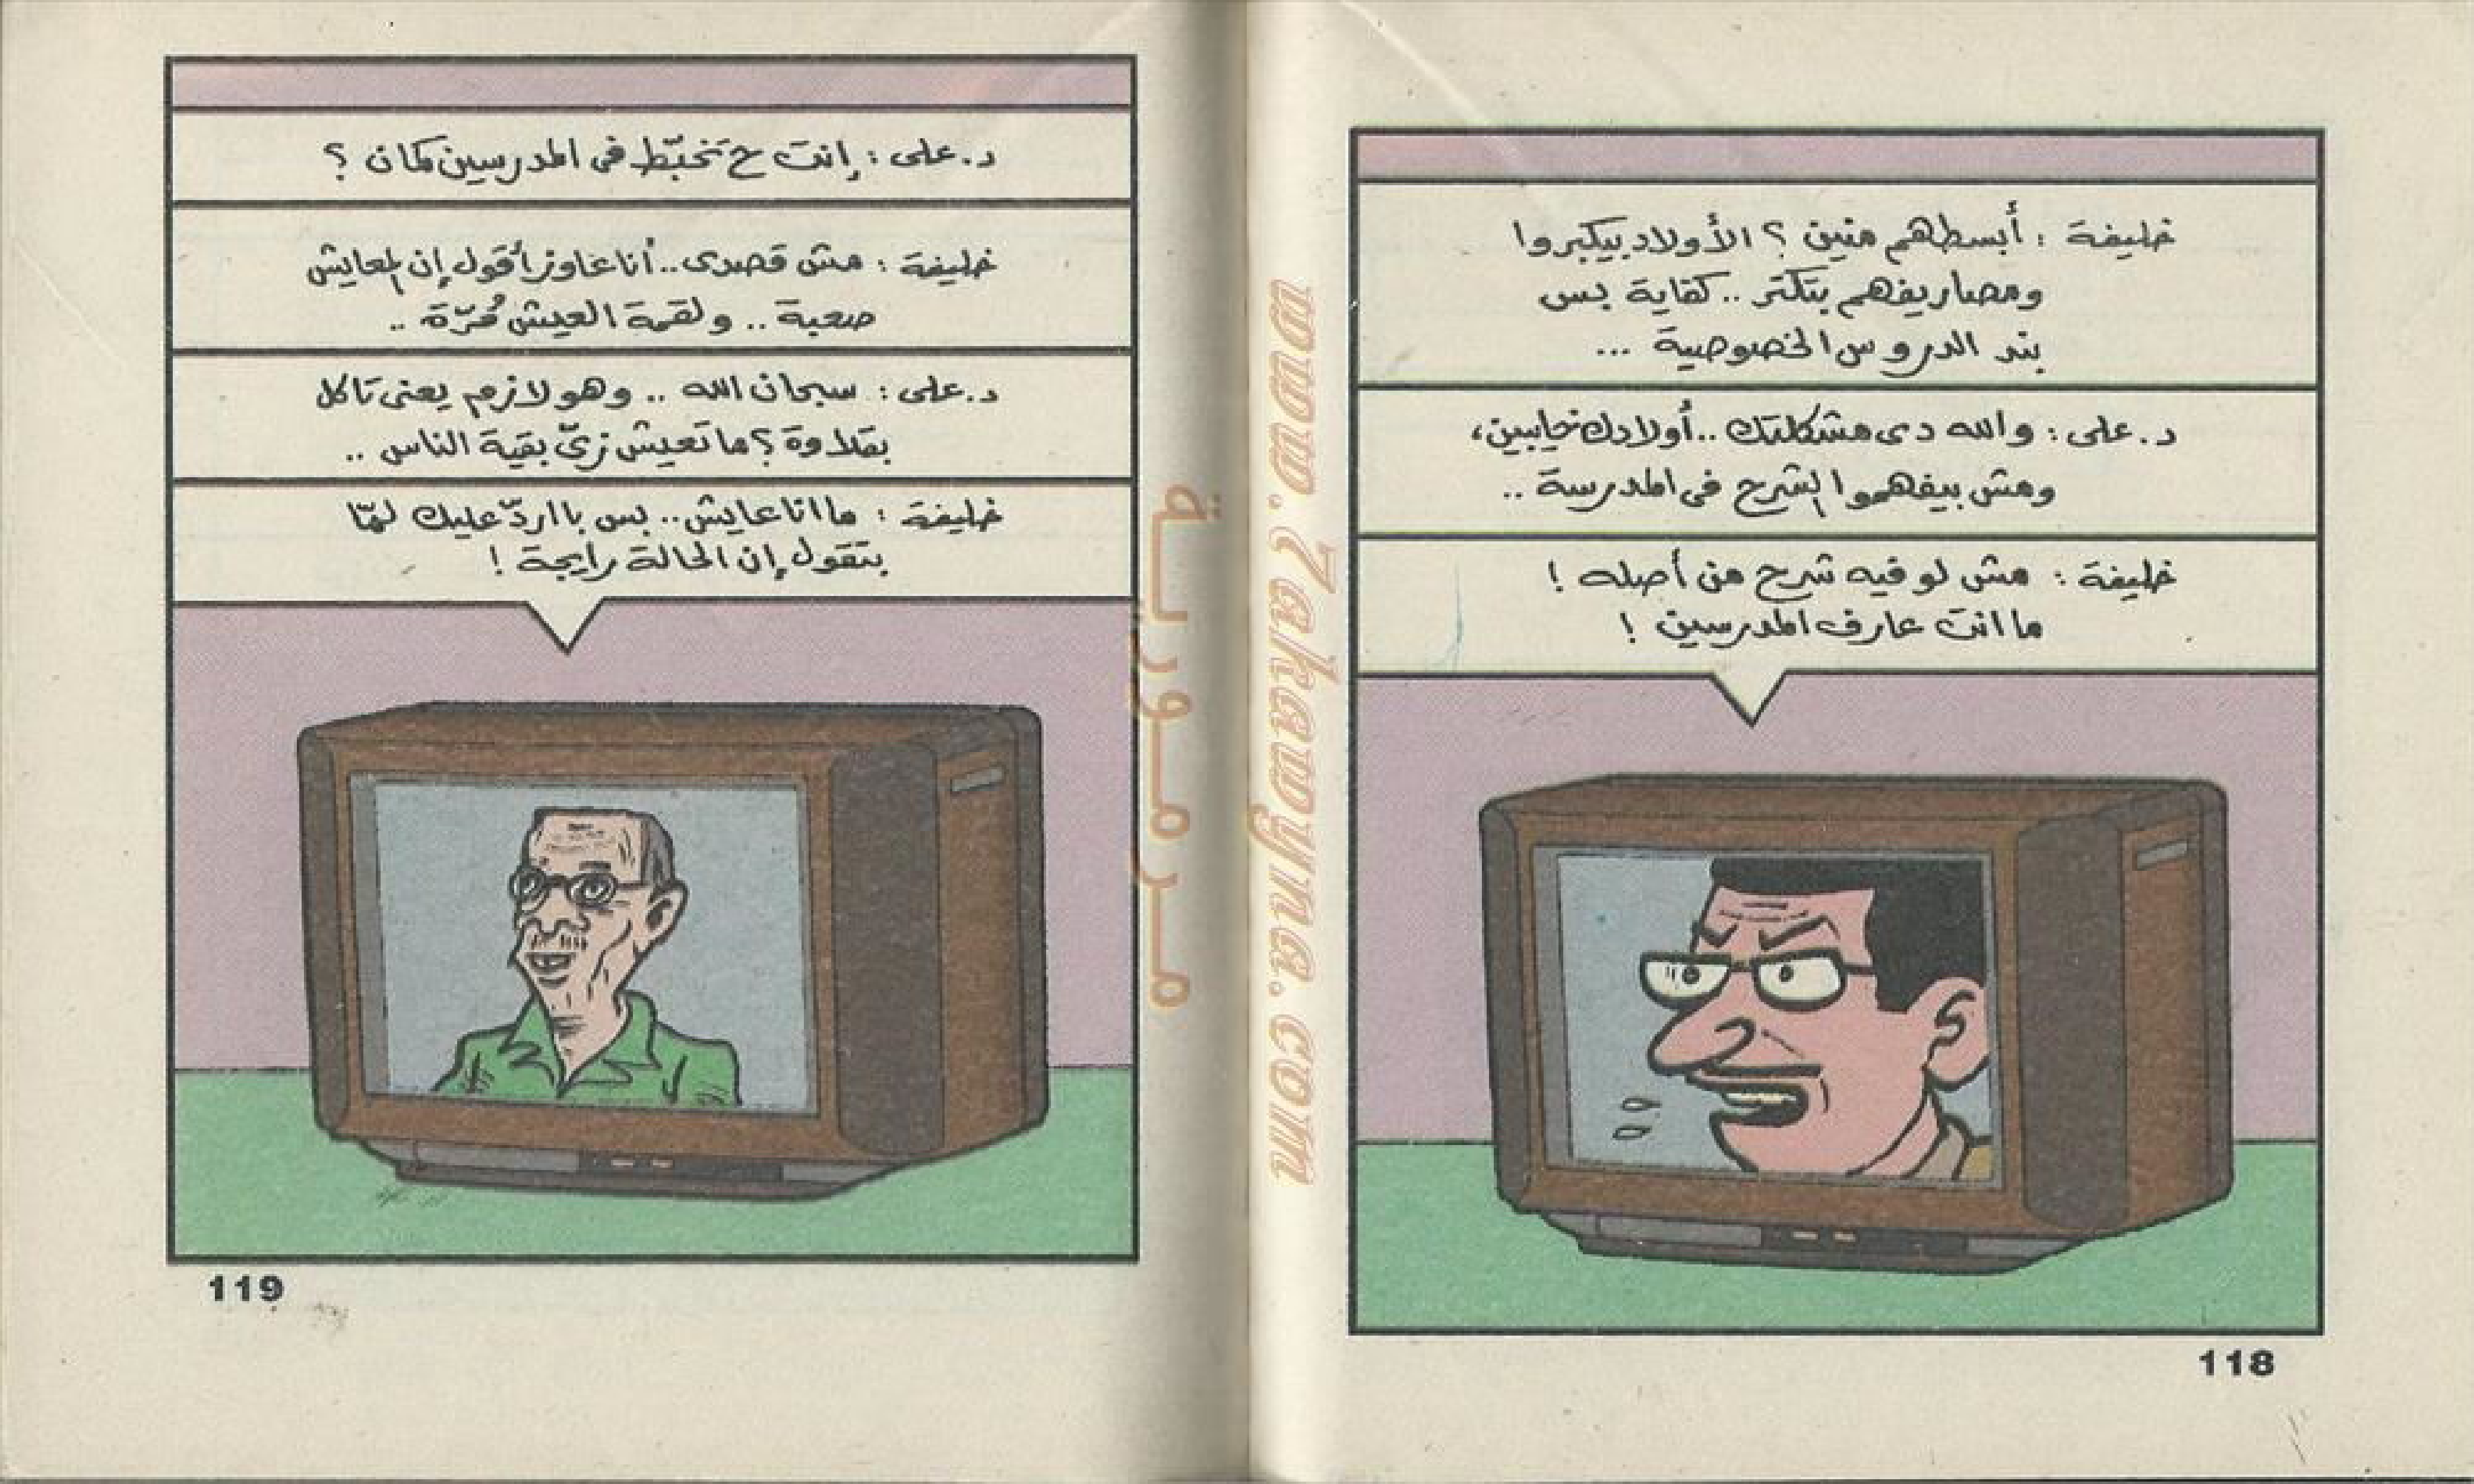 خليفة : أبسطهم منين ؟ الأولاد بيكبروا
ومصاريفهم بتكتر .. كفاية بس
بند الدروس الخصوصية ...
د . على : والله دى مشكلتك .. أولادك خايبين ،
ومش بيفهموا الشرح فى المدرسة ..
خليفة : مش لو فيه شرح من أصله !
ما انت عارف المدرسين !
118
د . على : إنت ح تخبّط فى المدرسين كمان ؟
خليفة : مش قصدى .. أنا عاوز أقول إن المعايش
صعبة .. ولقمة العيش مُرّة ..
د . على : سبحان الله .. وهو لازم يعنى تاكل
بقلاوة ؟ ما تعيش زىّ بقية الناس ..
خليفة : ما انا عايش .. بس با اردّ عليك لمّا
بتقول إن الحالة رايجة !
119
www.7akawyna.com
مرمورية